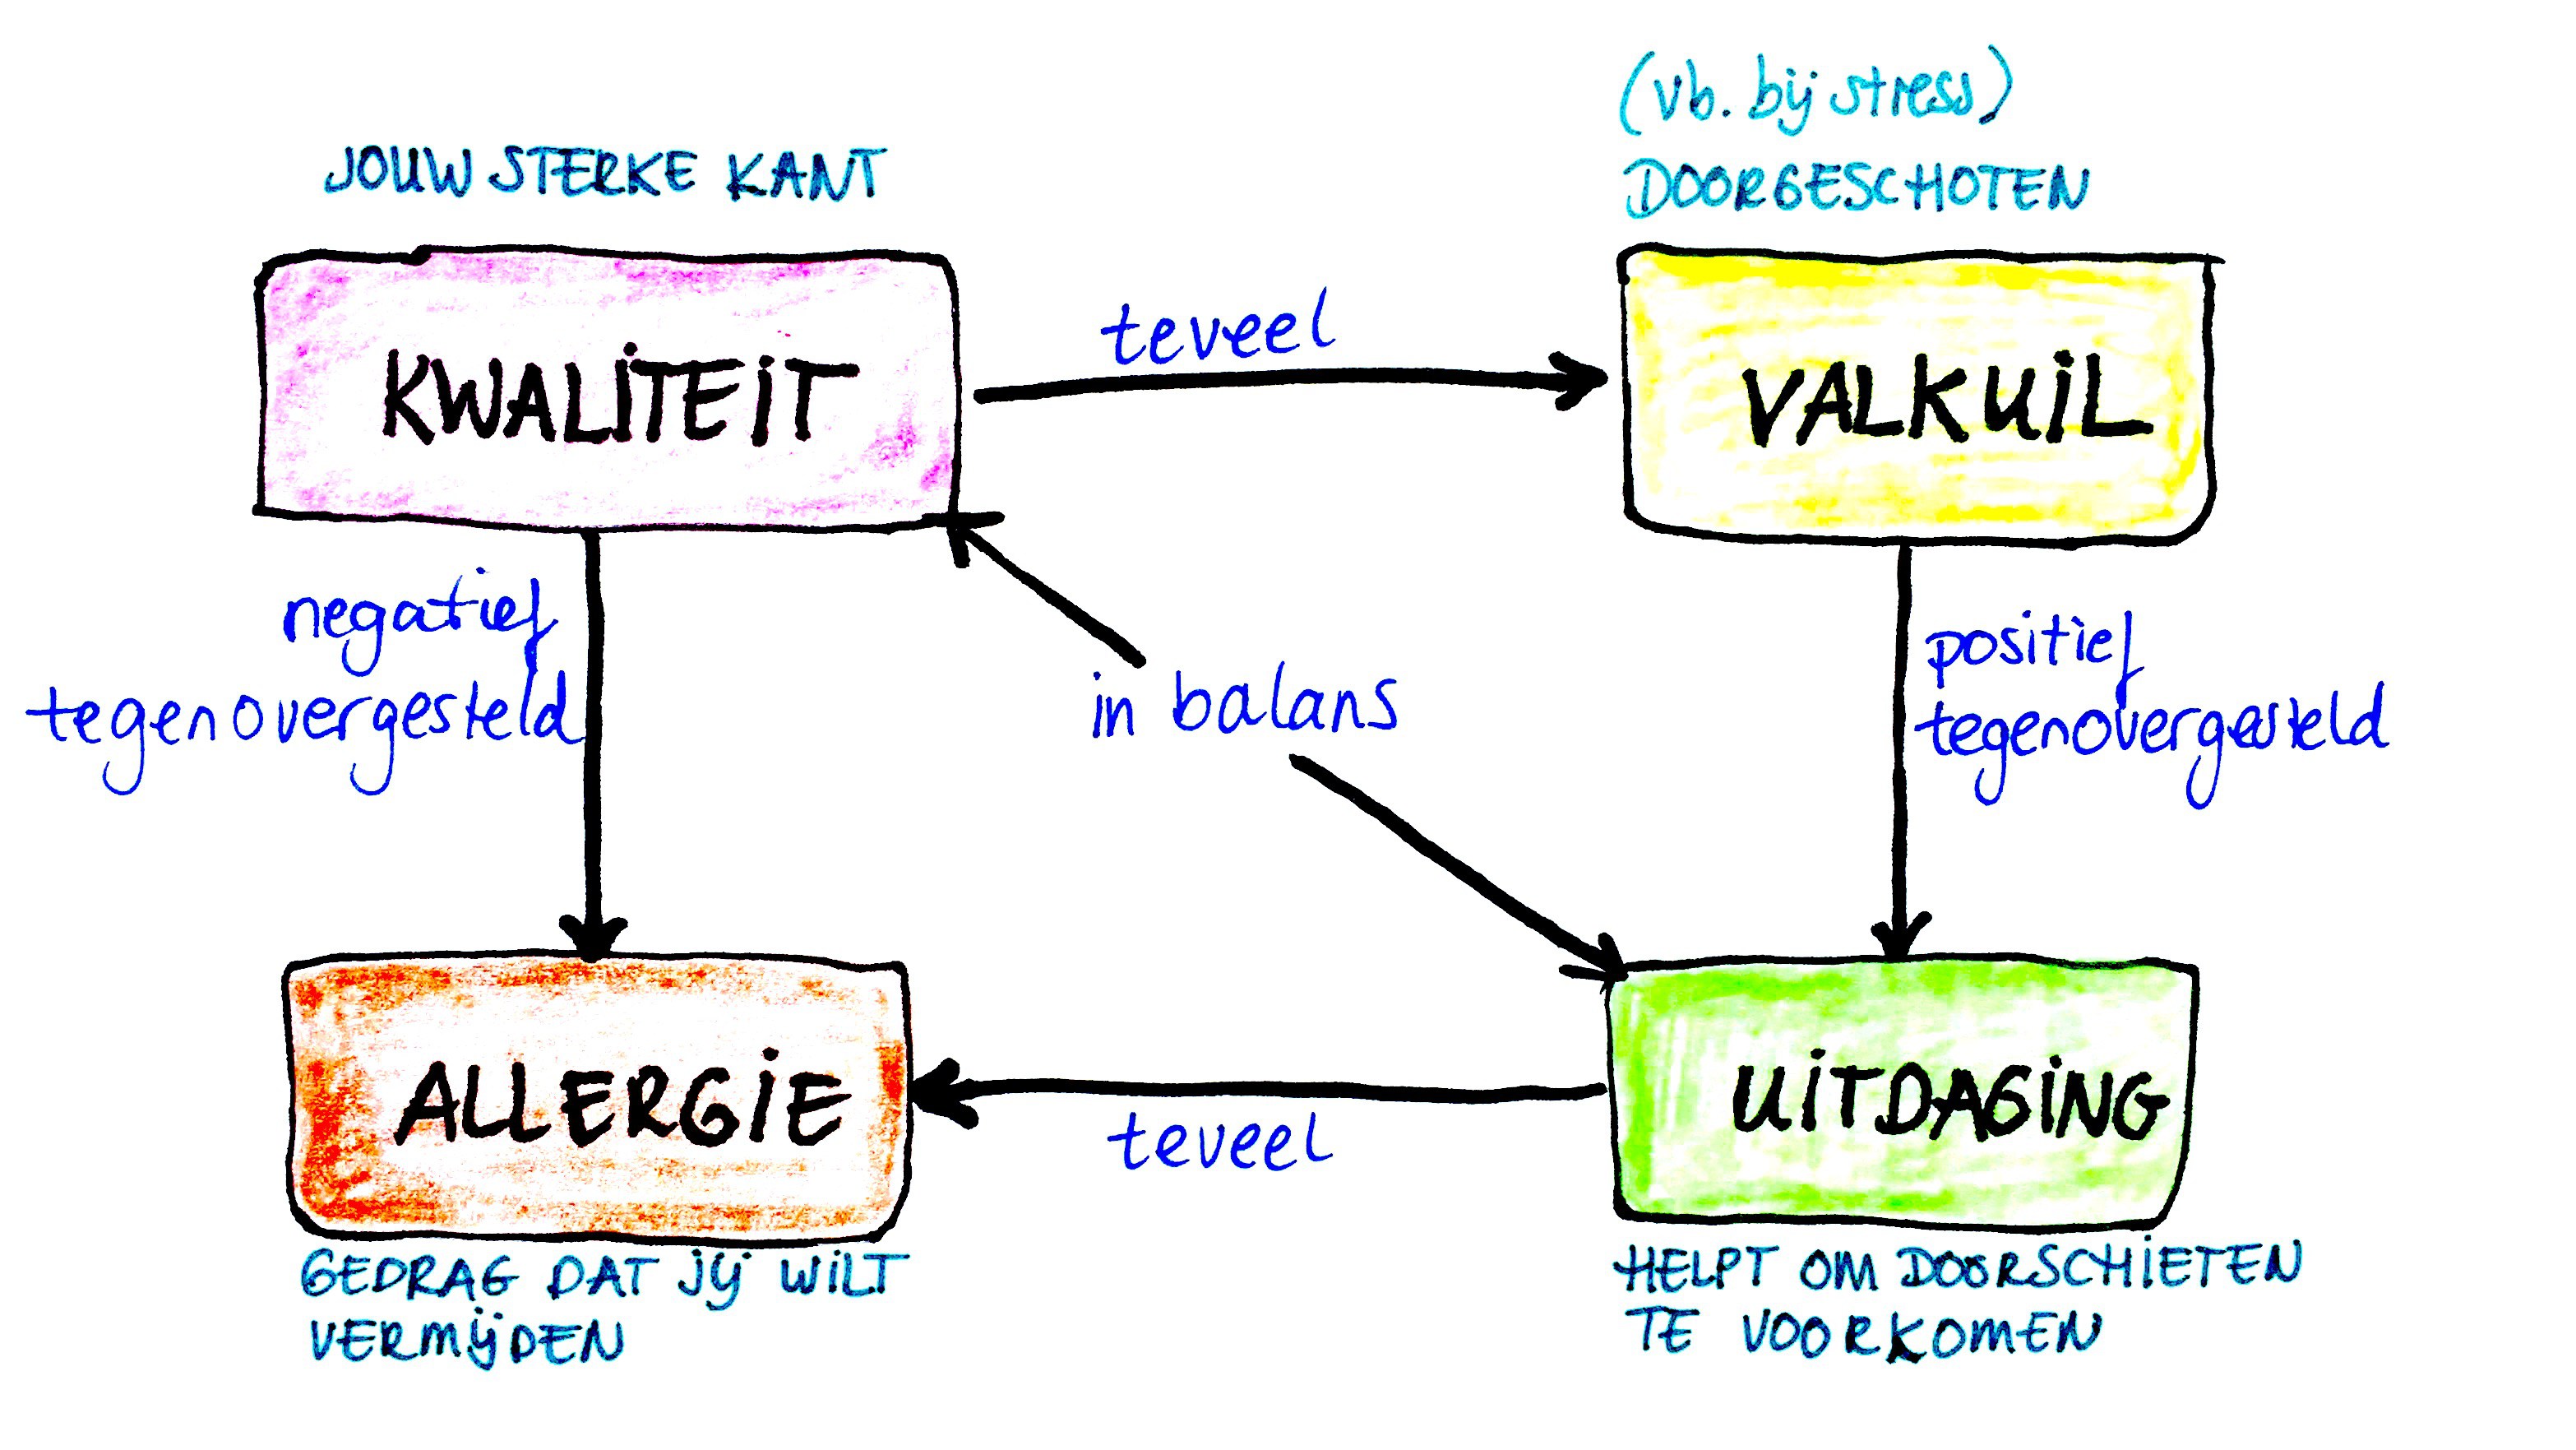 (vb. bij stress)
JOUW STERKE KANT
DOORGESCHOTEN
KWALITEIT
teveel
VALKUIL
negatief
tegenovergesteld
in balans
positief
tegenovergesteld
ALLERGIE
teveel
UITDAGING
GEDRAG DAT JIJ WILT
VERMIJDEN
HELPT OM DOORSCHIETEN
TE VOORKOMEN